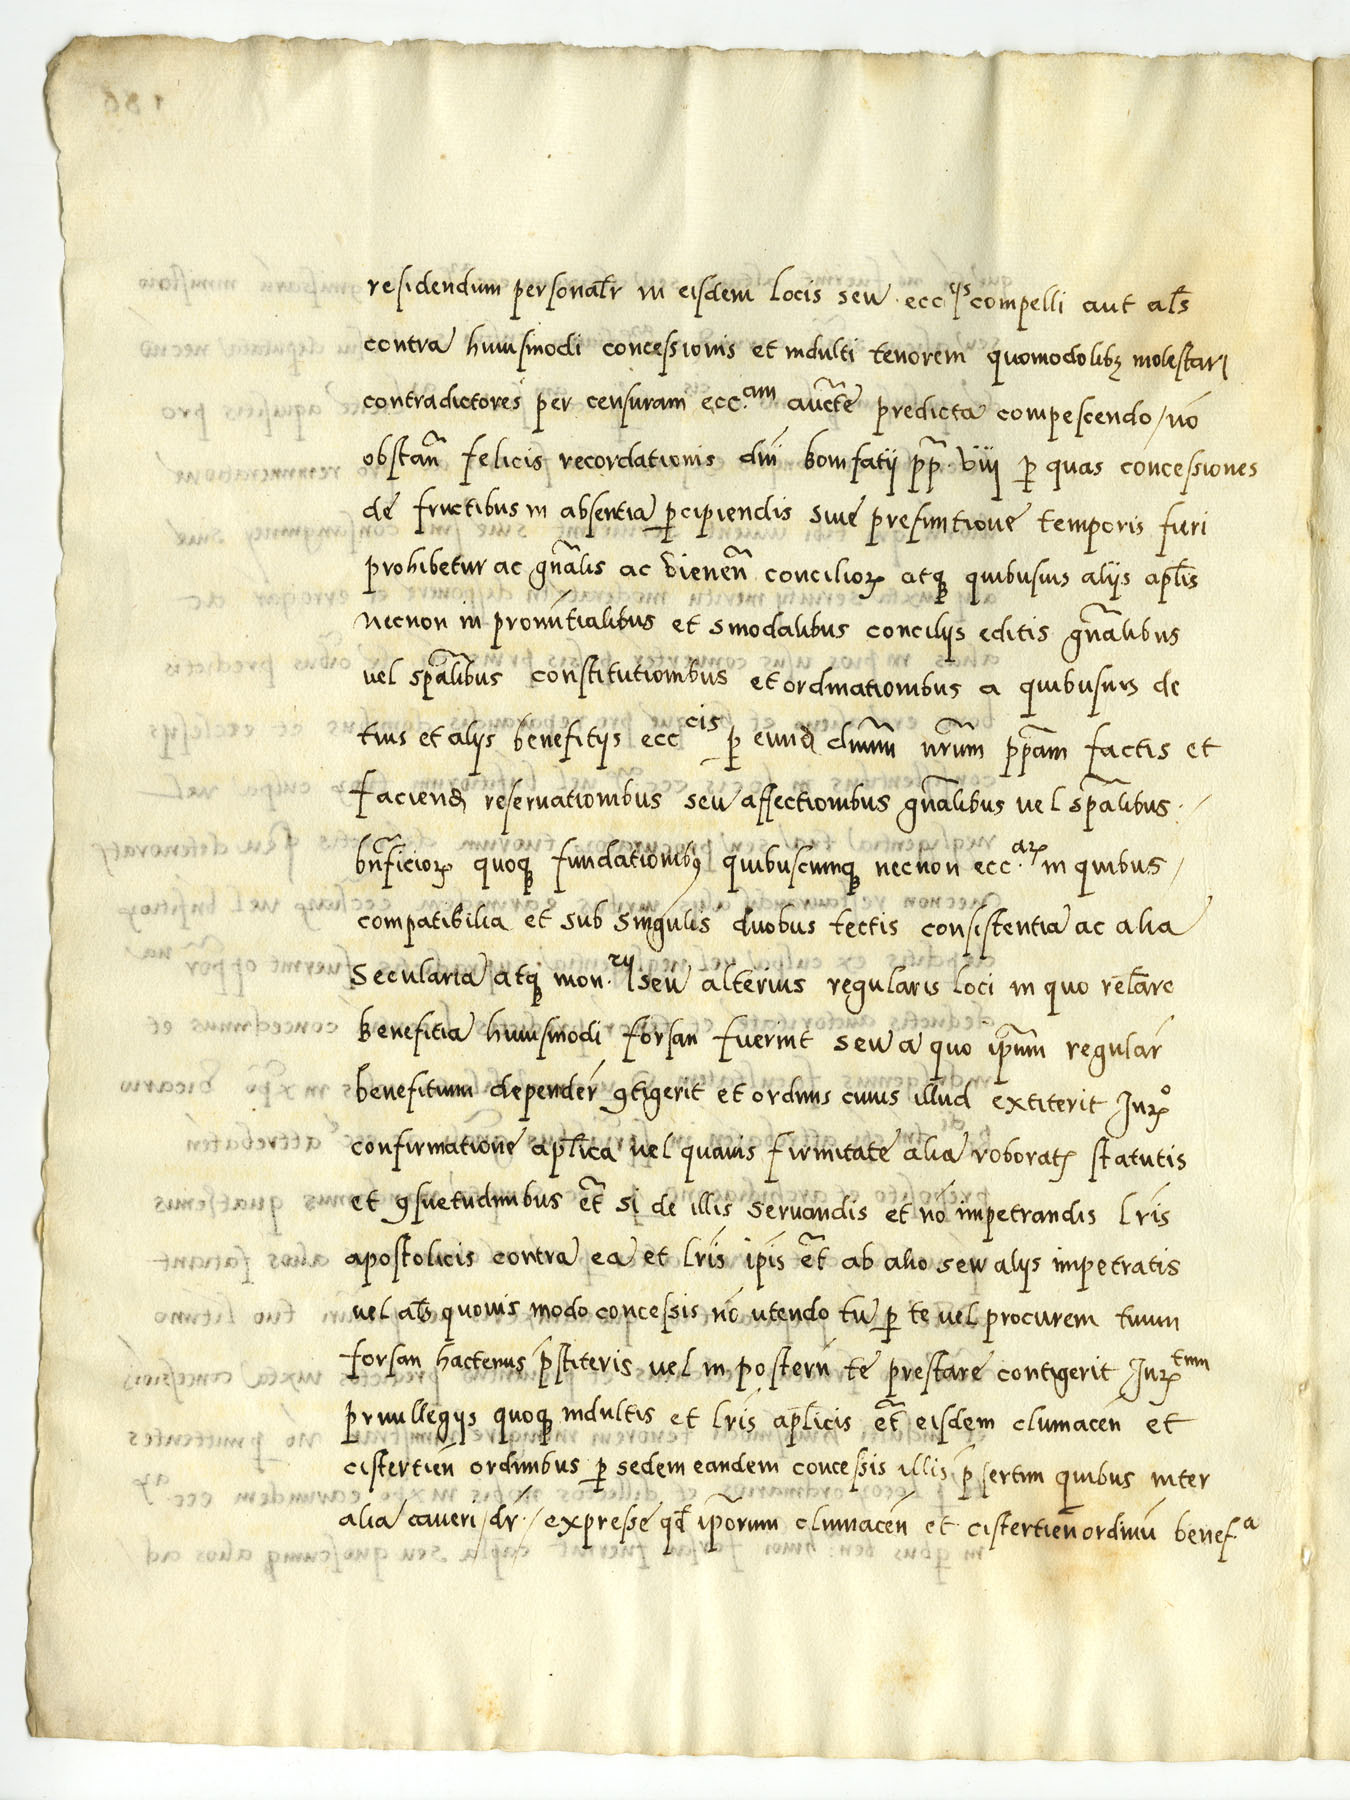 residendum personal̃r in eisdem locis seu ecc.ijs compelli aut al̃s
contra huiusmodi concessionis et indulti tenorem quomodolibꝫ molestari
contradictores per censuram ecc.am auct̃e predicta compescendo / nō
obstañ felicis recordationis dñi bonifatij pp̃ viij ꝑ quas concessiones
de fructibus in absentia ꝑcipiendis siue prefinitione temporis fieri
prohibetur ac gñalis ac vieneñ concilioꝝ atqꝫ quibusuis alijs apl̃is
necnon in prouintialibus et sinodalibus concilijs editis gñalibus
uel sp̃alibus constitutionibus et ordinationibus a quibusuis de
tuis et alijs benefitijs ecc.cis ꝑ eund̃ dñum nr̃um pp̃am factis et
faciend̃ reseruationibus seu affectionibus gñalibus uel sp̃alibus /
bñficioꝝ quoqꝫ fundationibꝰ quibuscumqꝫ necnon ecc.aꝝ in quibus /
compatibilia et sub singulis duobus tectis consistentia ac alia
Secularia atqꝫ mon.rij seu alterius regularis loci in quo rel̃are
benefitia huiusmodi forsan fuerint seu a quo ip̃um regular̃
benefitium depender̃ ꝯtigerit et ordinis cuius illud extiterit Iur.o
confirmatione apl̃ica uel quauis firmitate alia roborat̃ statutis
et ꝯsuetudinibus et̃ si de illis seruandis et nō impetrandis lr̃is
apostolicis contra ea et lr̃is ip̃is et̃ ab alio seu alijs impetratis
uel al̃s quouis modo concessis nō utendo tu ꝑ te uel procurem tuum
forsan hactenus p̃stiteris uel in posteru̅ te prestare contigerit Iur.tum
priuillegijs quoqꝫ indultis et lr̃is apl̃icis et̃ eisdem cluniaceñ et
cistertieñ ordinibus ꝑ sedem eandem concessis illis p̃sertim quibus inter
alia caueri / dr̃ / expresse qđ ip̃orum cluniaceñ et cistertieñ ordinū benef.a